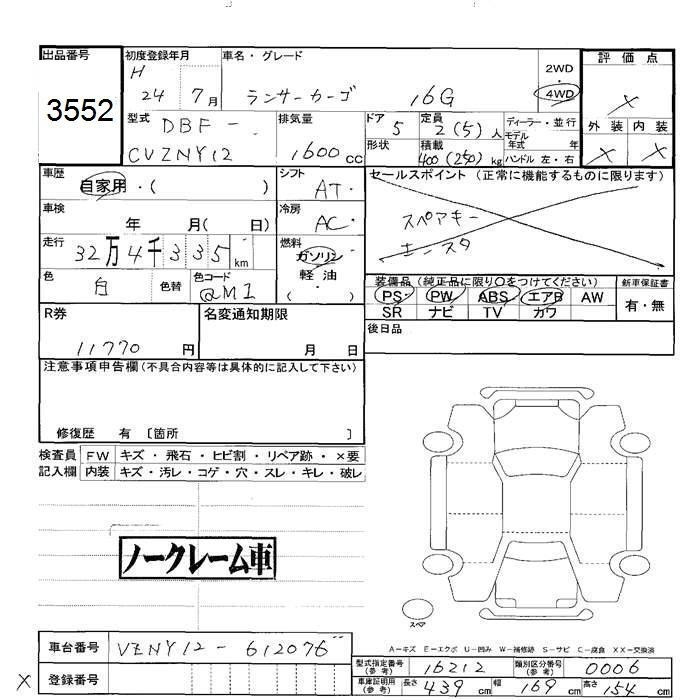 出品番号
3552
初度登録年月
H
24 7月
車名・グレード
ランサーカーゴ 16G
2WD
・
4WD
評価点
×
外装 内装
× ×
型式
DBF-
CVZNY12
排気量
1600cc
ドア
5
形状
定員
2(5)人
積載
400(250)kg
ディーラー・並行
モデル年式 年
ハンドル 左・右
車歴
自家用・( )
シフト
AT・
セールスポイント (正常に機能するものに限ります)
スペアキー
エンスタ
車検
年 月( 日)
冷房
AC・
走行
32万4千335km
燃料
ガソリン
軽油
( )
色
白
色替
色コード
@M1
装備品 (純正品に限り○をつけてください)
PS PW ABS エアB AW
SR ナビ TV カワ
新車保証書
有・無
R券
11770円
名変通知期限
月 日
後日品
注意事項申告欄(不具合内容等は具体的に記入して下さい)
修復歴 有 〔箇所 〕
検査員記入欄
FW キズ・飛石・ヒビ割・リペア跡・×要
内装 キズ・汚レ・コゲ・穴・スレ・キレ・破レ
ノークレーム車
スペア
A－キズ E－エクボ U－凹み W－補修跡 S－サビ C－腐食 XX－交換済
車台番号
VZNY12-612076
× 登録番号
型式指定番号(参考)
16212
類別区分番号(参考)
0006
車庫証明用(参考)
長さ 439cm
幅 169cm
高さ 154cm